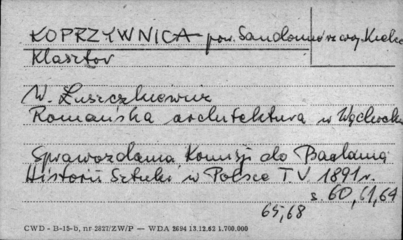 KOPRZYWNICA pow. Sandomierz woj. Kielce
Klasztor
W. Łuszczkiewicz
Romańska architektura w Wąchocku
Sprawozdania Komisji do Badania
Historii Sztuki w Polsce T. V 1891 r.
s. 60, 61, 64
65, 68
CWD - B-15-b, nr 2827/ZW/P — WDA 2694 13.12.62 1.700.000